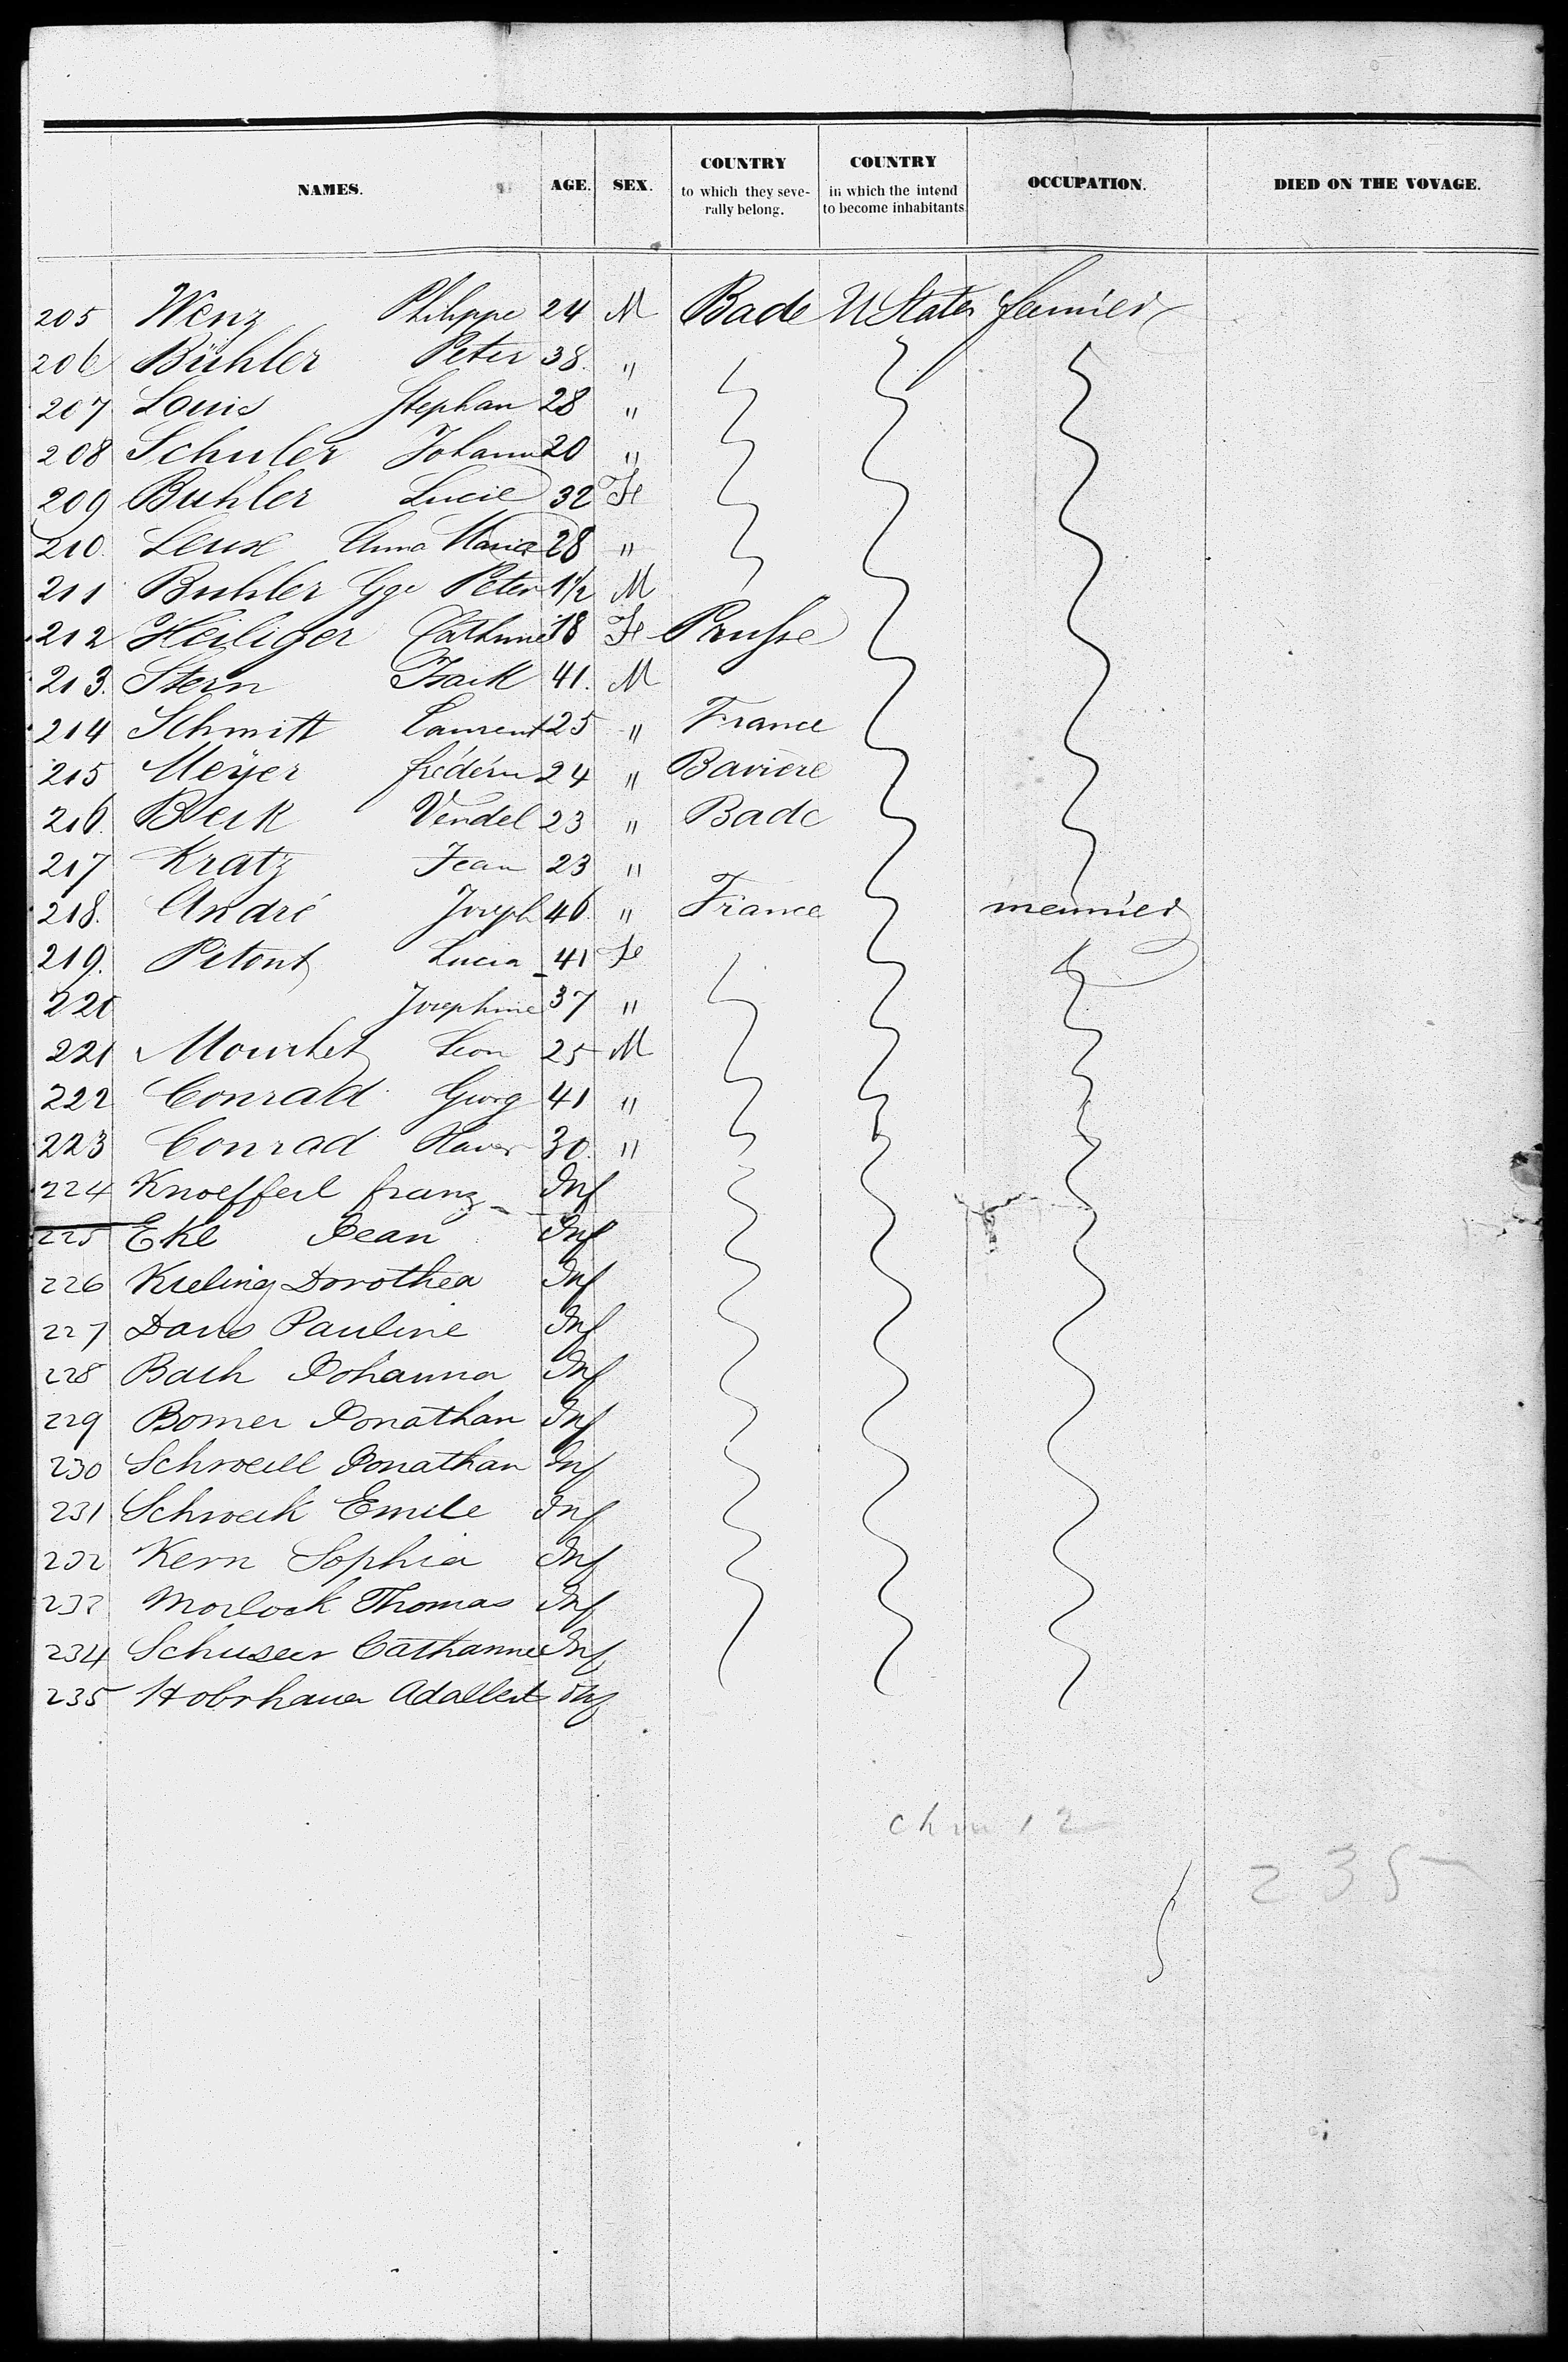 NAMES. AGE. SEX. COUNTRY to which they seve- rally belong. COUNTRY in which the intend to become inhabitants OCCUPATION. DIED ON THE VOVAGE.
205 Wenz Philippe 24 M Bade U States
206 Bühler Peter 38 "
207 Louis Stephan 28 "
208 Schuler Johann 20 "
209 Buhler Lucie 32 Fe
210. Anna Maria 28 "
211 Buhler Gge Peter 1½ M
212 Heiliger 18 Fe Prusse
213. Stern Isaik 41. M
214 Schmitt Laurent 25 " France
215 Meyer 24 " Bavière
216. Beik Vendel 23 " Bade
217 Kratz Jean 23 "
218. André Joseph 46 " France meunier
219. Pitont Lucia 41 Fe
220 Josephine 37 "
221 Leon 25 M
222 Conrad Georg 41 "
223 Conrad Xaver 30. "
224 Knoefferl franz Inf
225 Ekl Jean Inf
226 Kieling Dorothea Inf
227 Pauline Inf
228 Bach Johanna Inf
229 Bomer Jonathan Inf
230 Schweill Jonathan Inf
231 Schweik Emile Inf
232 Kern Sophia Inf
233 Morlock Thomas Inf
234 Inf
235 Adalbert Inf
235